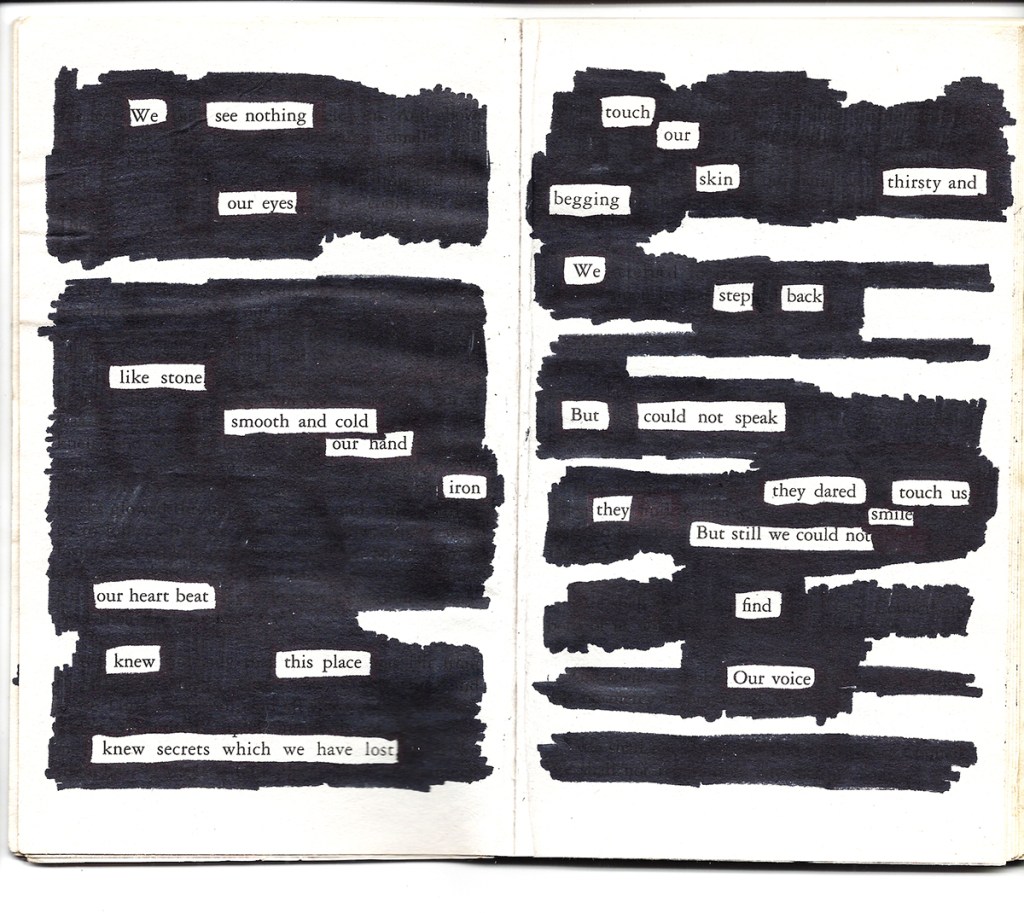 We see nothing
our eyes
like stone
smooth and cold
our hand
iron
our heart beat
knew this place
knew secrets which we have lost.
touch
our
skin thirsty and
begging
We
step back
But could not speak
they dared touch us
they smile
But still we could not
find
Our voice